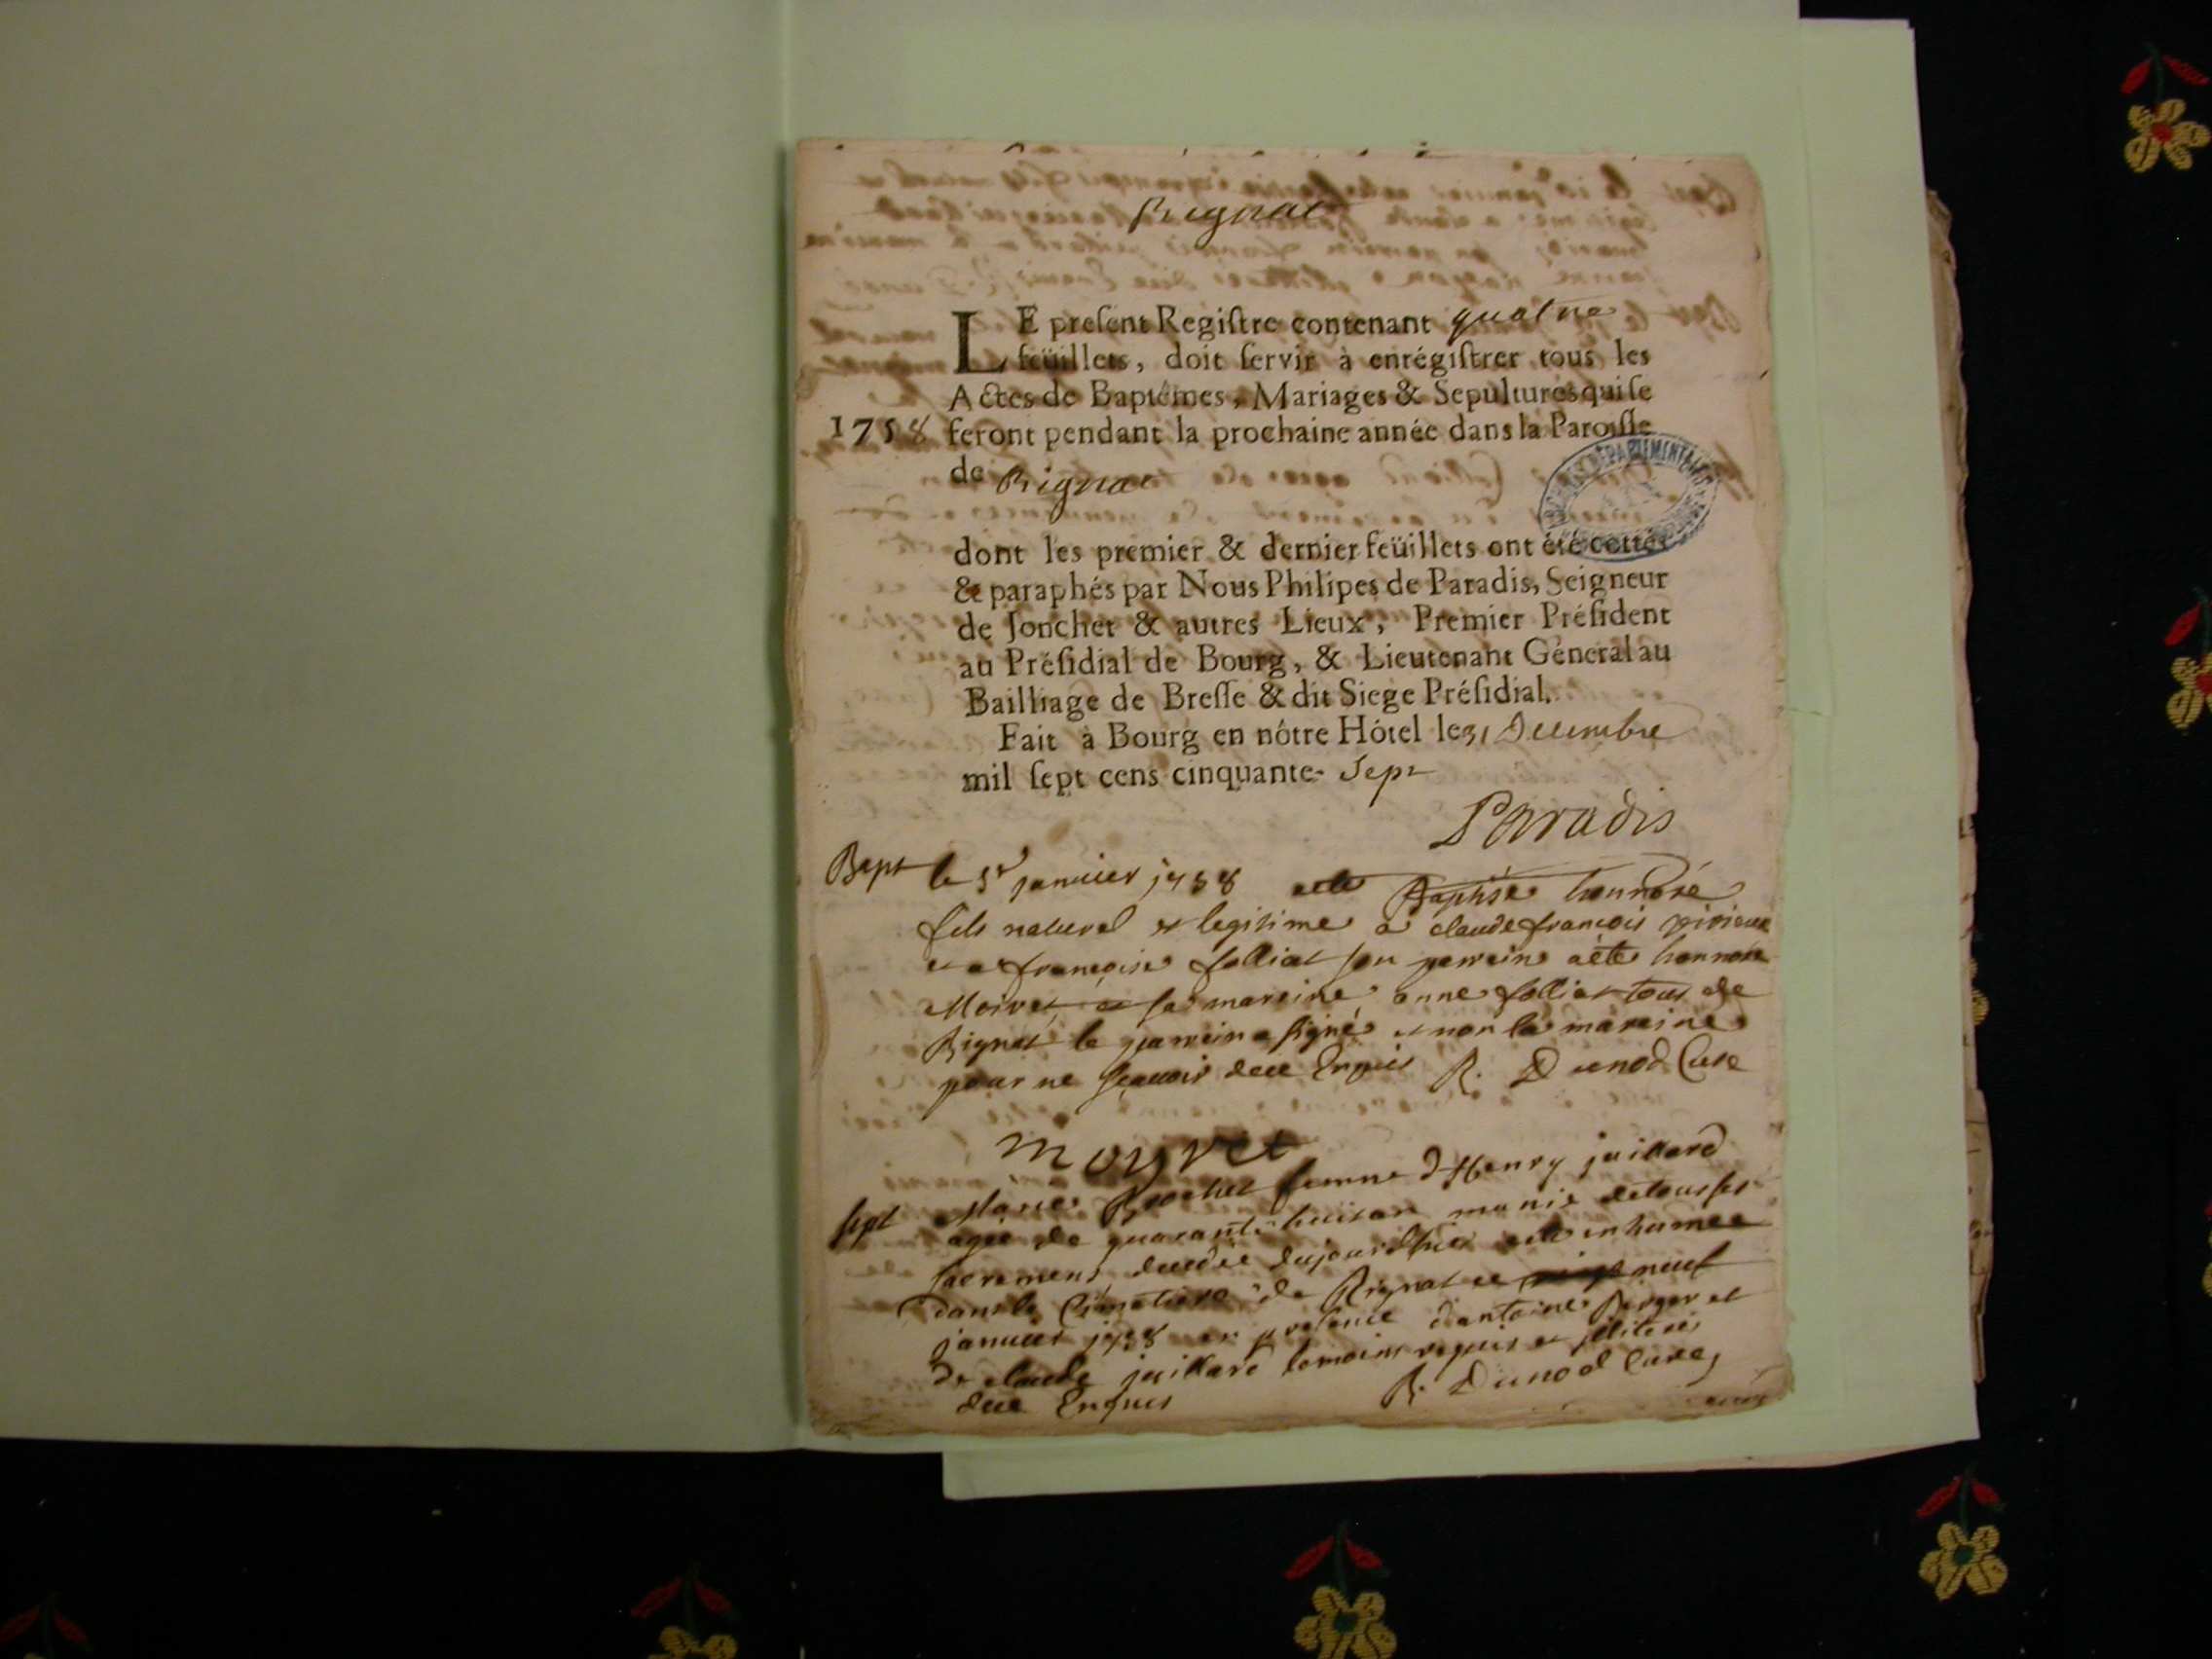 Rignat
LE presеnt Registre contenant quatre
feüillets, doit servir à enrégistrer tous les
Actes de Baptêmes, Mariages & Sepultures qui se
1758 feront pendant la prochaine année dans la Paroisse
de Rignat
dont les premier & dernier feüillets ont été cottés
& paraphés par Nous Philipes de Paradis, Seigneur
de Jonchet & autres Lieux, Premier Président
au Présidial de Bourg, & Lieutenant Géneral au
Bailliage de Bresse & dit Siege Présidial.
Fait à Bourg en nôtre Hôtel le 31 Decembre
mil sept cens cinquante- Sept
Paradis
Bapt le 5e janvier 1758 a été Baptisé honnoré
fils naturel et legitime a claude françois
et a françoise folliat son parrein a été honnoré
Moiret et sa mareine anne folliat tous de
Rignat le parrein a signé et non la mareine
pour ne sçavoir de ce Enquis R. Dunod Curé
moyret
sept Marie Brochet femme d'Henry juillard
agée de quarante huit an munie de tous ses
sacremens decedée dujourdhui a été inhumée
dans le Cimetiere de Rignat ce neuf
janvier 1758 en presence d'antoine Berger et
de claude juillard temoins requis et illiterés
de ce Enquis R. Dunod Curé